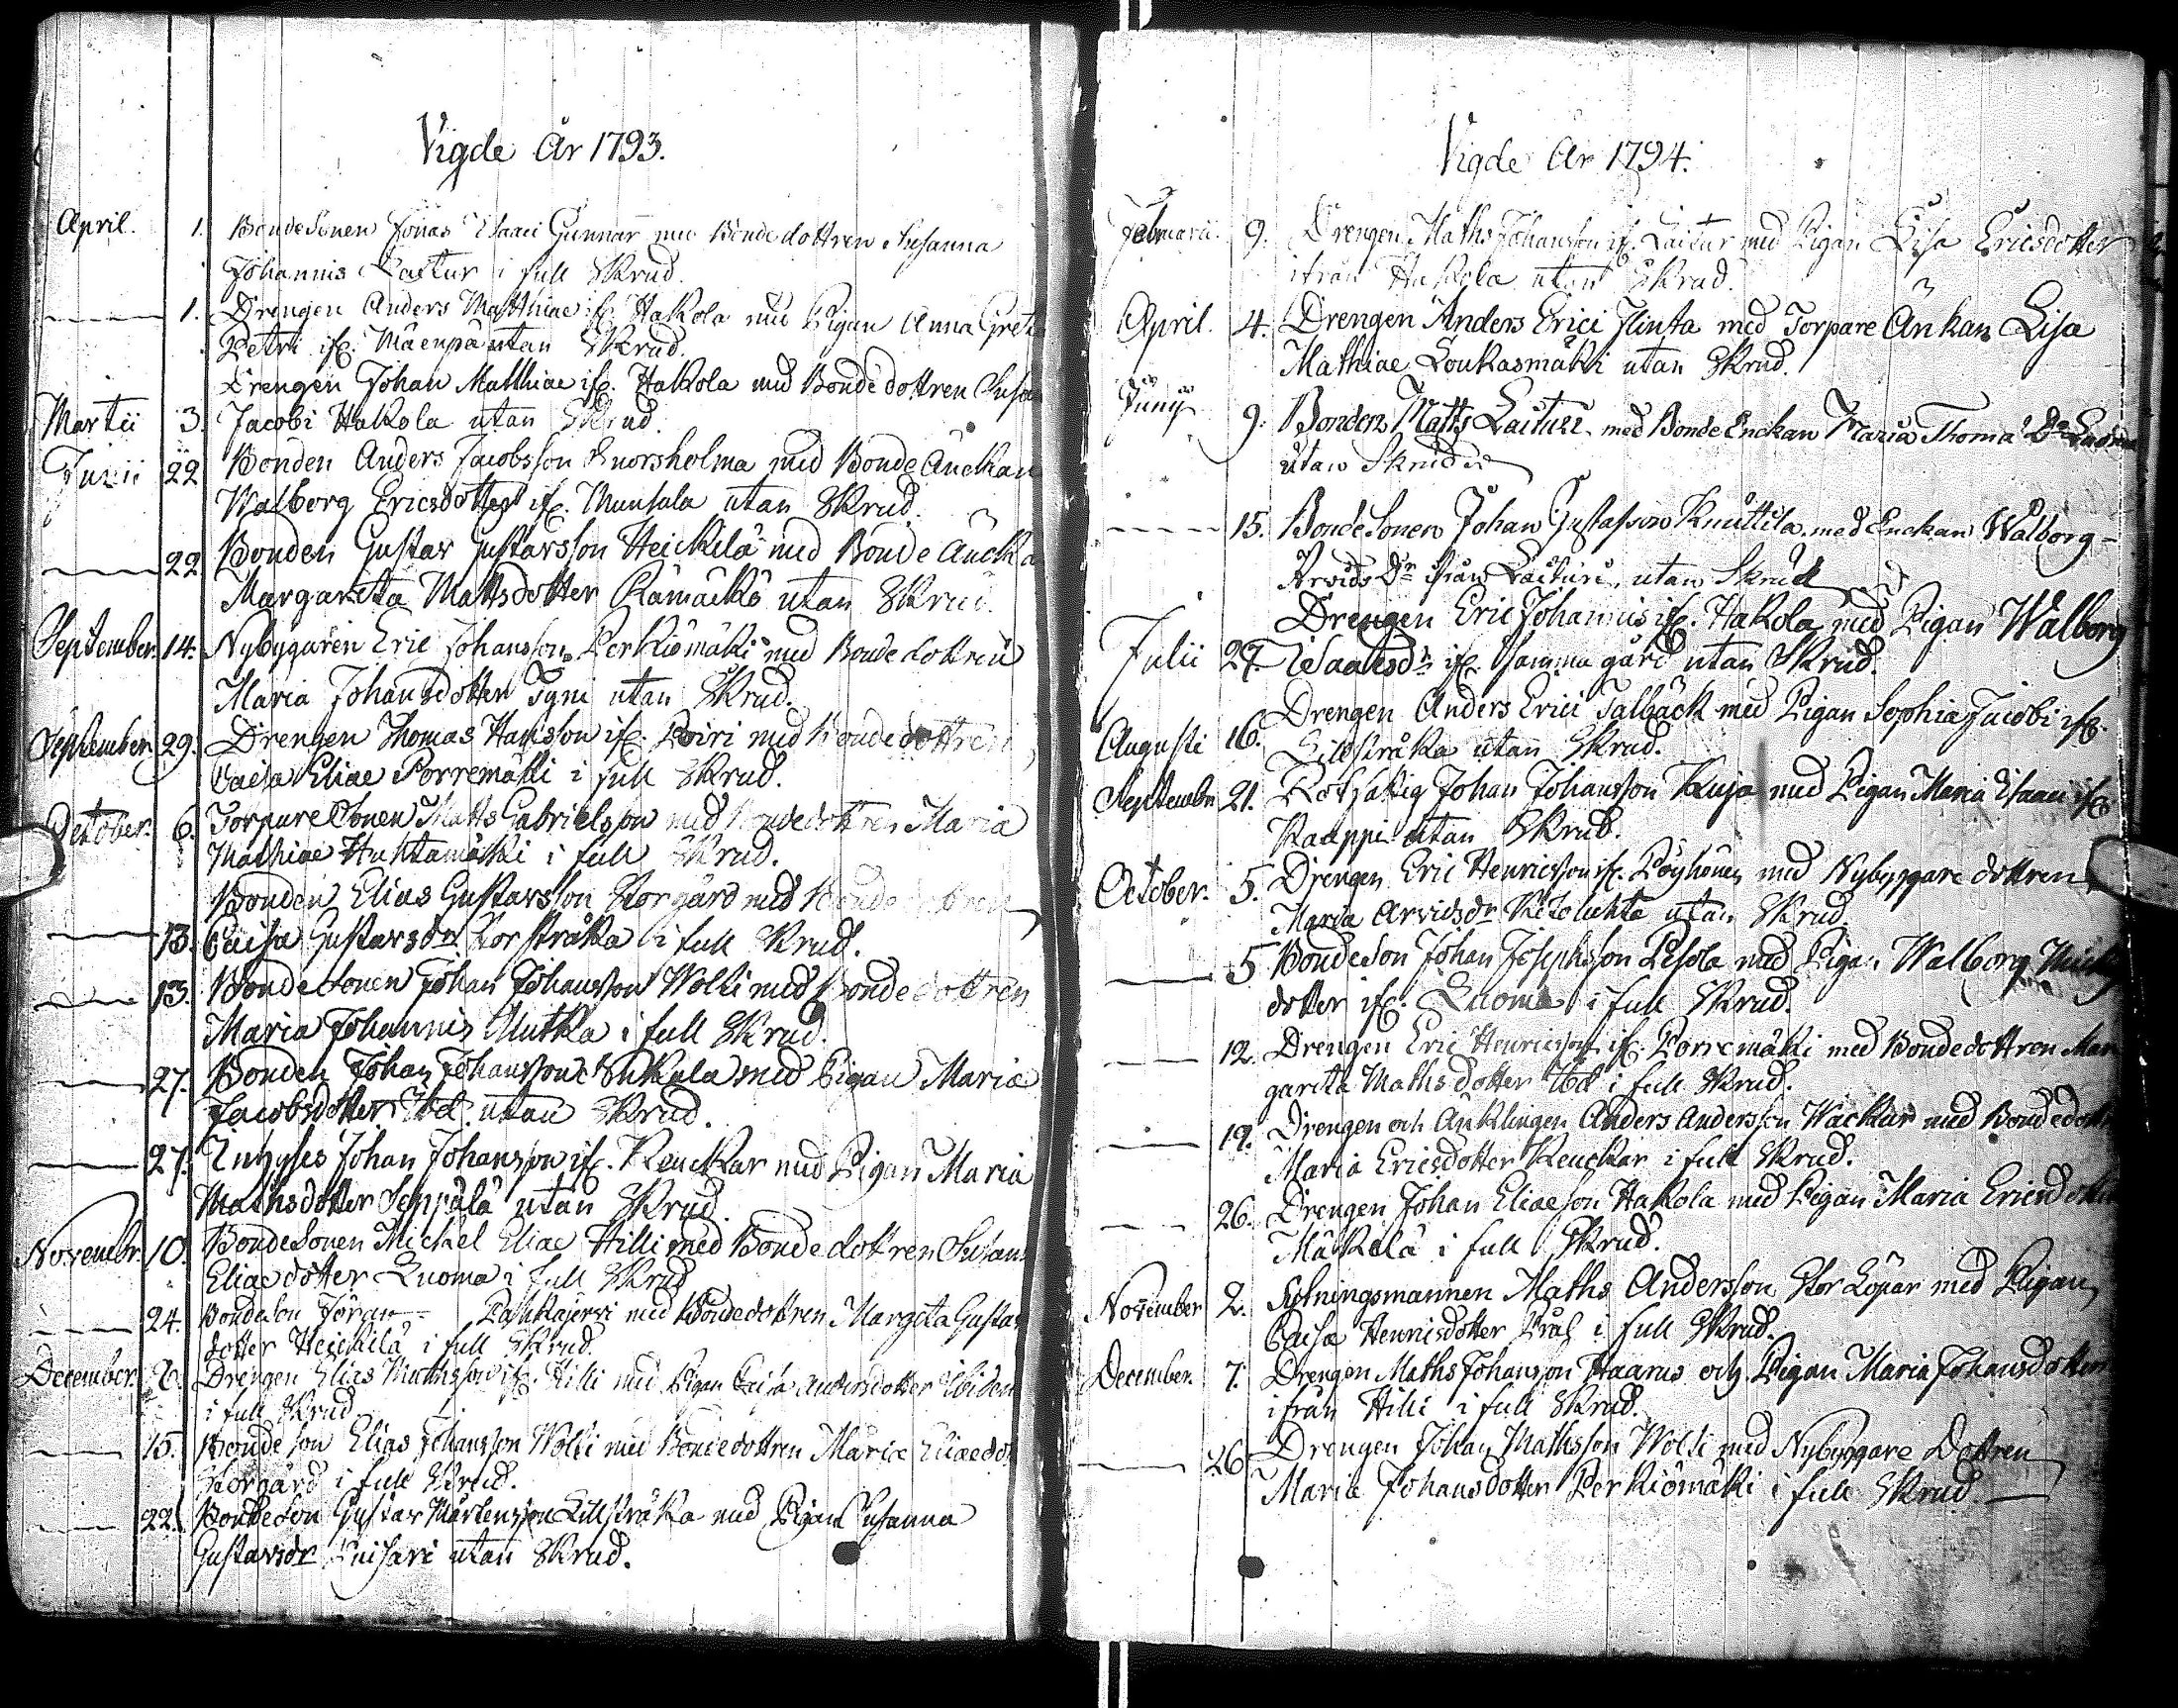 Vigde År 1793.
April. 1. BondeSonen Jonas Isaaci Gunnar med Bondedottren Susanna
Johannis Laitur i full Skrud.
1. Drengen Anders Matthiae if. Hakola med Pigan Anna Greta
Petri if. Mäenpä utan Skrud.
Drengen Johan Matthiae if. Hakola med Bondedottren Susan
Martii 3. Jacobi Hakola utan Skrud.
Junii 22 Bonden Anders Jacobsson Snorsholma med Bonde Änckan
Walborg Ericsdotter if. Munsala utan Skrud.
22. Bonden Gustav Gustavsson Heickilä med Bonde Äncka
Margareta Mattsdotter Rämäckö utan Skrud.
September 14. Nybygaren Eric Johansson Perkiömäki med Bondedottren
Maria Johansdotter Tyni utan Skrud.
September 29. Drengen Thomas Hansson if. Poiri med Bondedottren
Caisa Eliae Porremäki i full Skrud.
October. 6. TorpareSonen Matts Gabrielsson med Bondedottren Maria
Mathiae Huhtamäki i full Skrud.
Bonden Elias Gustavsson Storgård med Bondedottren
13. Caisa Gustavsdr Storstråka i full Skrud.
13. BondeSonen Johan Johansson Wolti med Bondedottren
Maria Johannis Mutka i full Skrud.
27. Bonden Johan Johansson Sukula med Pigan Maria
Jacobsdotter Ibd. utan Skrud.
27. Inhyses Johan Johansson if. Kenckar med Pigan Maria
Mathsdotter Seppälä utan Skrud.
Novembr. 10. BondeSonen Michel Eliae Hilli med Bondedottren Susan
Eliaedotter Luoma i full Skrud
24. BondeSon Jöran Paskajervi med Bondedottren Margeta Gustav
dotter Heickilä i full Skrud.
December. 26. Drengen Elias Mathsson if. Hilli med Pigan Caisa Andersdotter Ibidem
i full Skrud
15. Bondeson Elias Johansson Wolti med Bondedottren Maria Eliaedot
Storgård i full Skrud.
22. BondeSon Gustav Mårtensson Lillstråka med Pigan Susanna
Gustavsdr Luisari utan Skrud.
Vigde År 1794.
Februarii. 9. Drengen Maths Johansson if. Laitur med Pigan Lisa Ericsdotter
ifrån Hakola utan Skrud.
April. 4. Drengen Anders Erici Flinta med Torpare Änkan Lisa
Mathiae Loukasmäki utan Skrud.
Junij 9. Bonden Matts Laituri med Bonde Enckan Maria Thomæ Dr
utan Skrud
15. BondeSonen Johan Gustafsson Knuttila med Enckan Walborg
Arvids Dr ifrån Laituri utan Skrud
Drengen Eric Johannis if. Hakola med Pigan Walborg
Julii 27. Isaaksdr if. samma gård utan Skrud.
Drengen Anders Erici Talbäck med Pigan Sophia Jacobi if.
Augusti 16. Lillstråka utan Skrud.
September 21. Rotfattig Johan Johansson Kuja med Pigan Maria Isaaci if
Kauppi utan Skrud.
October. 5. Drengen Eric Henricsson if. Pöyhönen med Nybyggare dottren
Maria Arvidsdr Ketoluhta utan Skrud.
5 BondeSon Johan Josephsson Pesola med Pigan Walborg
dotter if. Luoma i full Skrud.
12. Drengen Eric Henricsson if. Porremäki med Bondedottren Mar
gareta Mathsdotter Ibd i full Skrud.
19. Drengen och Änklingen Anders Andersson Wackar med Bondedott
Maria Ericsdotter Kenckar i full Skrud.
26. Drengen Johan Eliaeson Hakola med Pigan Maria Ericsdotter
Mäkelä i full Skrud.
November 2. Sytningsmannen Maths Andersson Stor Löpar med Pigan
Caisa Henricsdotter Prål i full Skrud.
December. 7. Drengen Maths Johansson Haarus och Pigan Maria Johansdotter
ifrån Hilli i full Skrud.
26 Drengen Johan Mathsson Wolti med Nybyggare Dottren
Maria Johansdotter Perkiömäki i full Skrud.